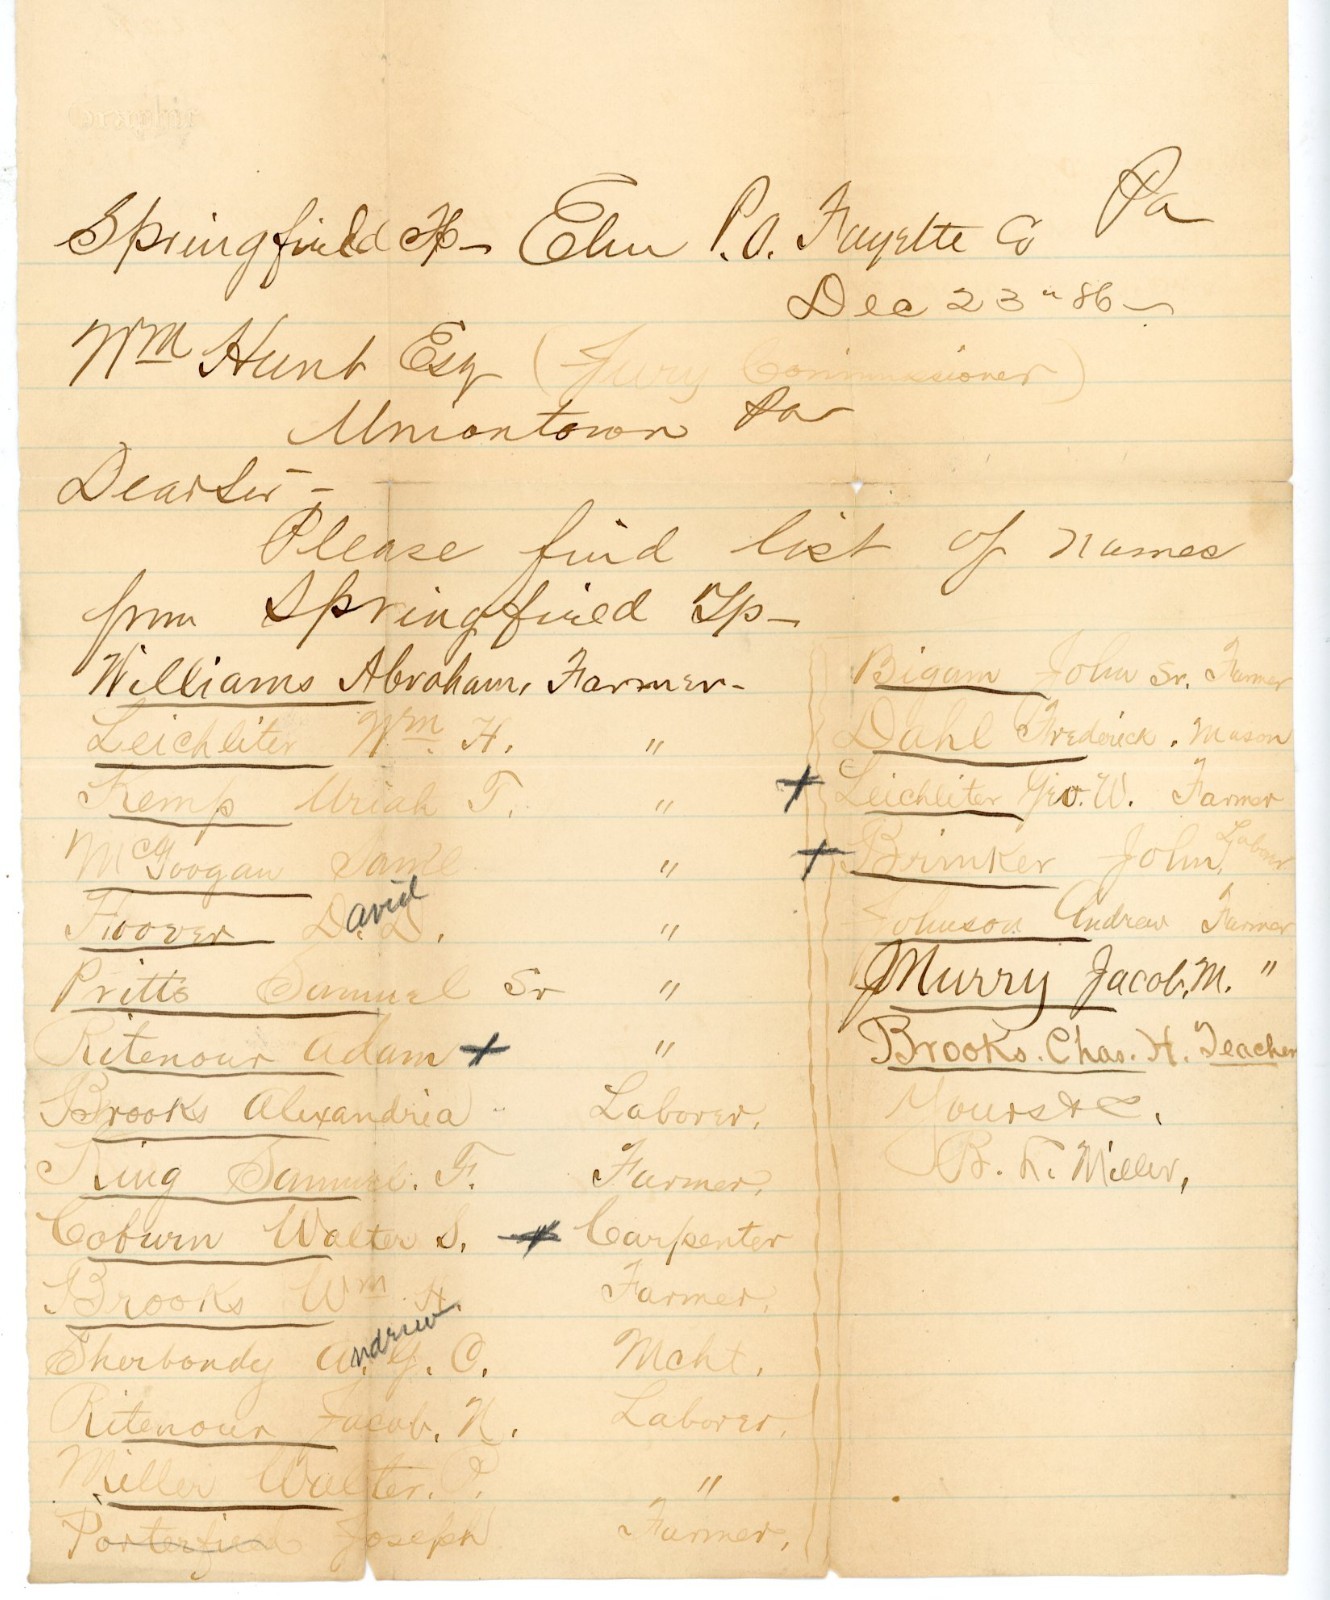 Springfield Tp - Elm P.O. Fayette Co Pa
Dec 23" 86 -
Wm Hunt Esq (Jury Commissioner)
Uniontown Pa
Dear Sir -
Please find list of names
from Springfield Tp -
Williams Abraham, Farmer -
Leichliter Wm H. "
Kemp Uriah T. "
McGoogan Saml "
Hoover David D. "
Pritts Samuel Sr "
Ritenour Adam + "
Brooks Alexandria Laborer,
King Samuel. F. Farmer,
Coburn Walter S. + Carpenter
Brooks Wm H. Farmer,
Sherbondy Andrew J. C. Mcht.
Ritenour Jacob, N. Laborer,
Miller Walter. P. "
Porterfield Joseph Farmer,
Bigam John Sr. Farmer
Dahl Frederick, Mason
+ Leichliter Geo. W. Farmer
+ Brinker John, Labour
Johnson Andrew Farmer
Murry Jacob, M. "
Brooks. Chas. H. Teacher
Yours &c,
B. K. Miller,